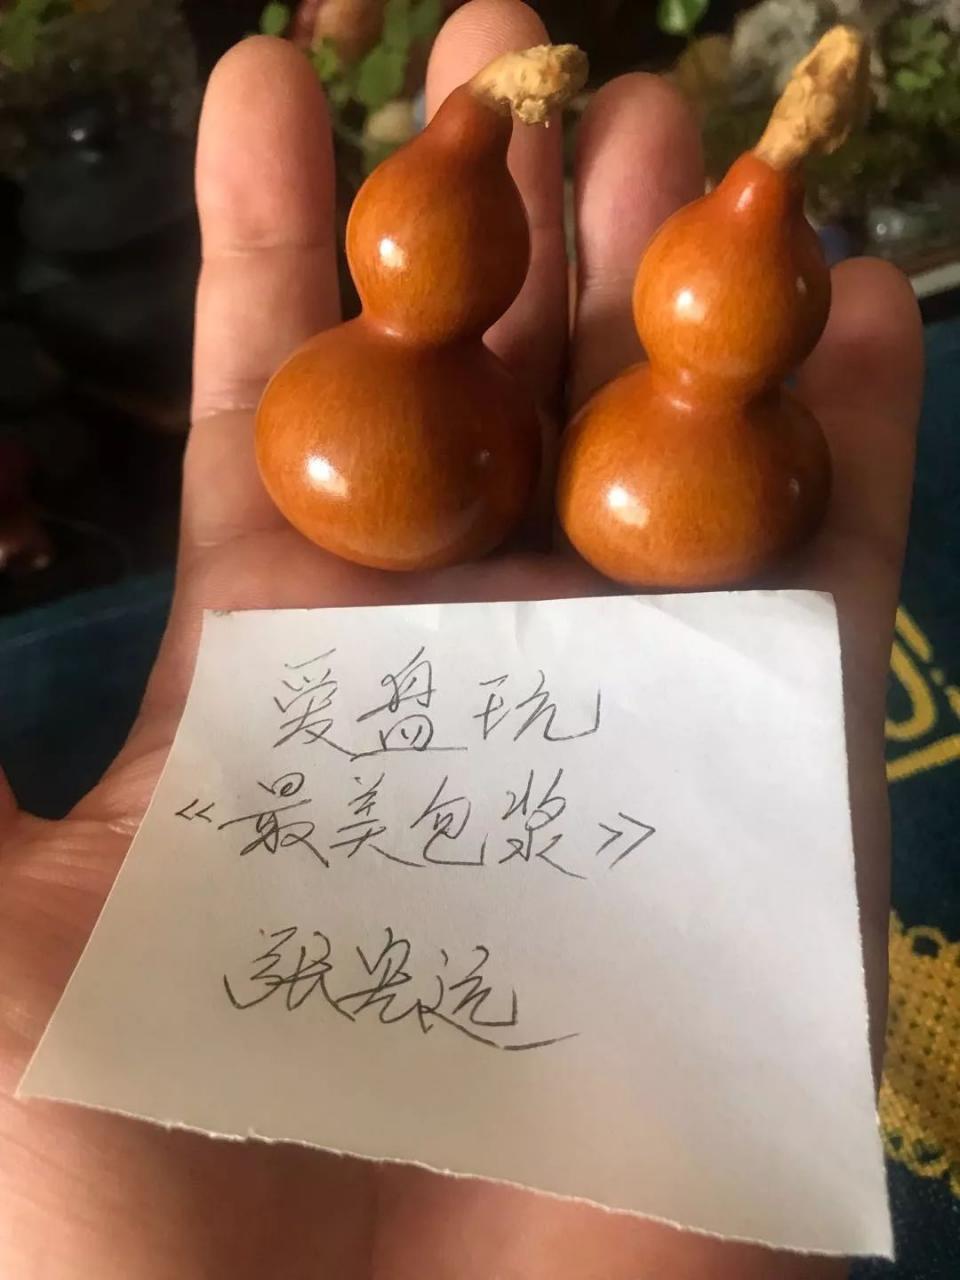 爱盘玩
《最美包浆》
张宏远